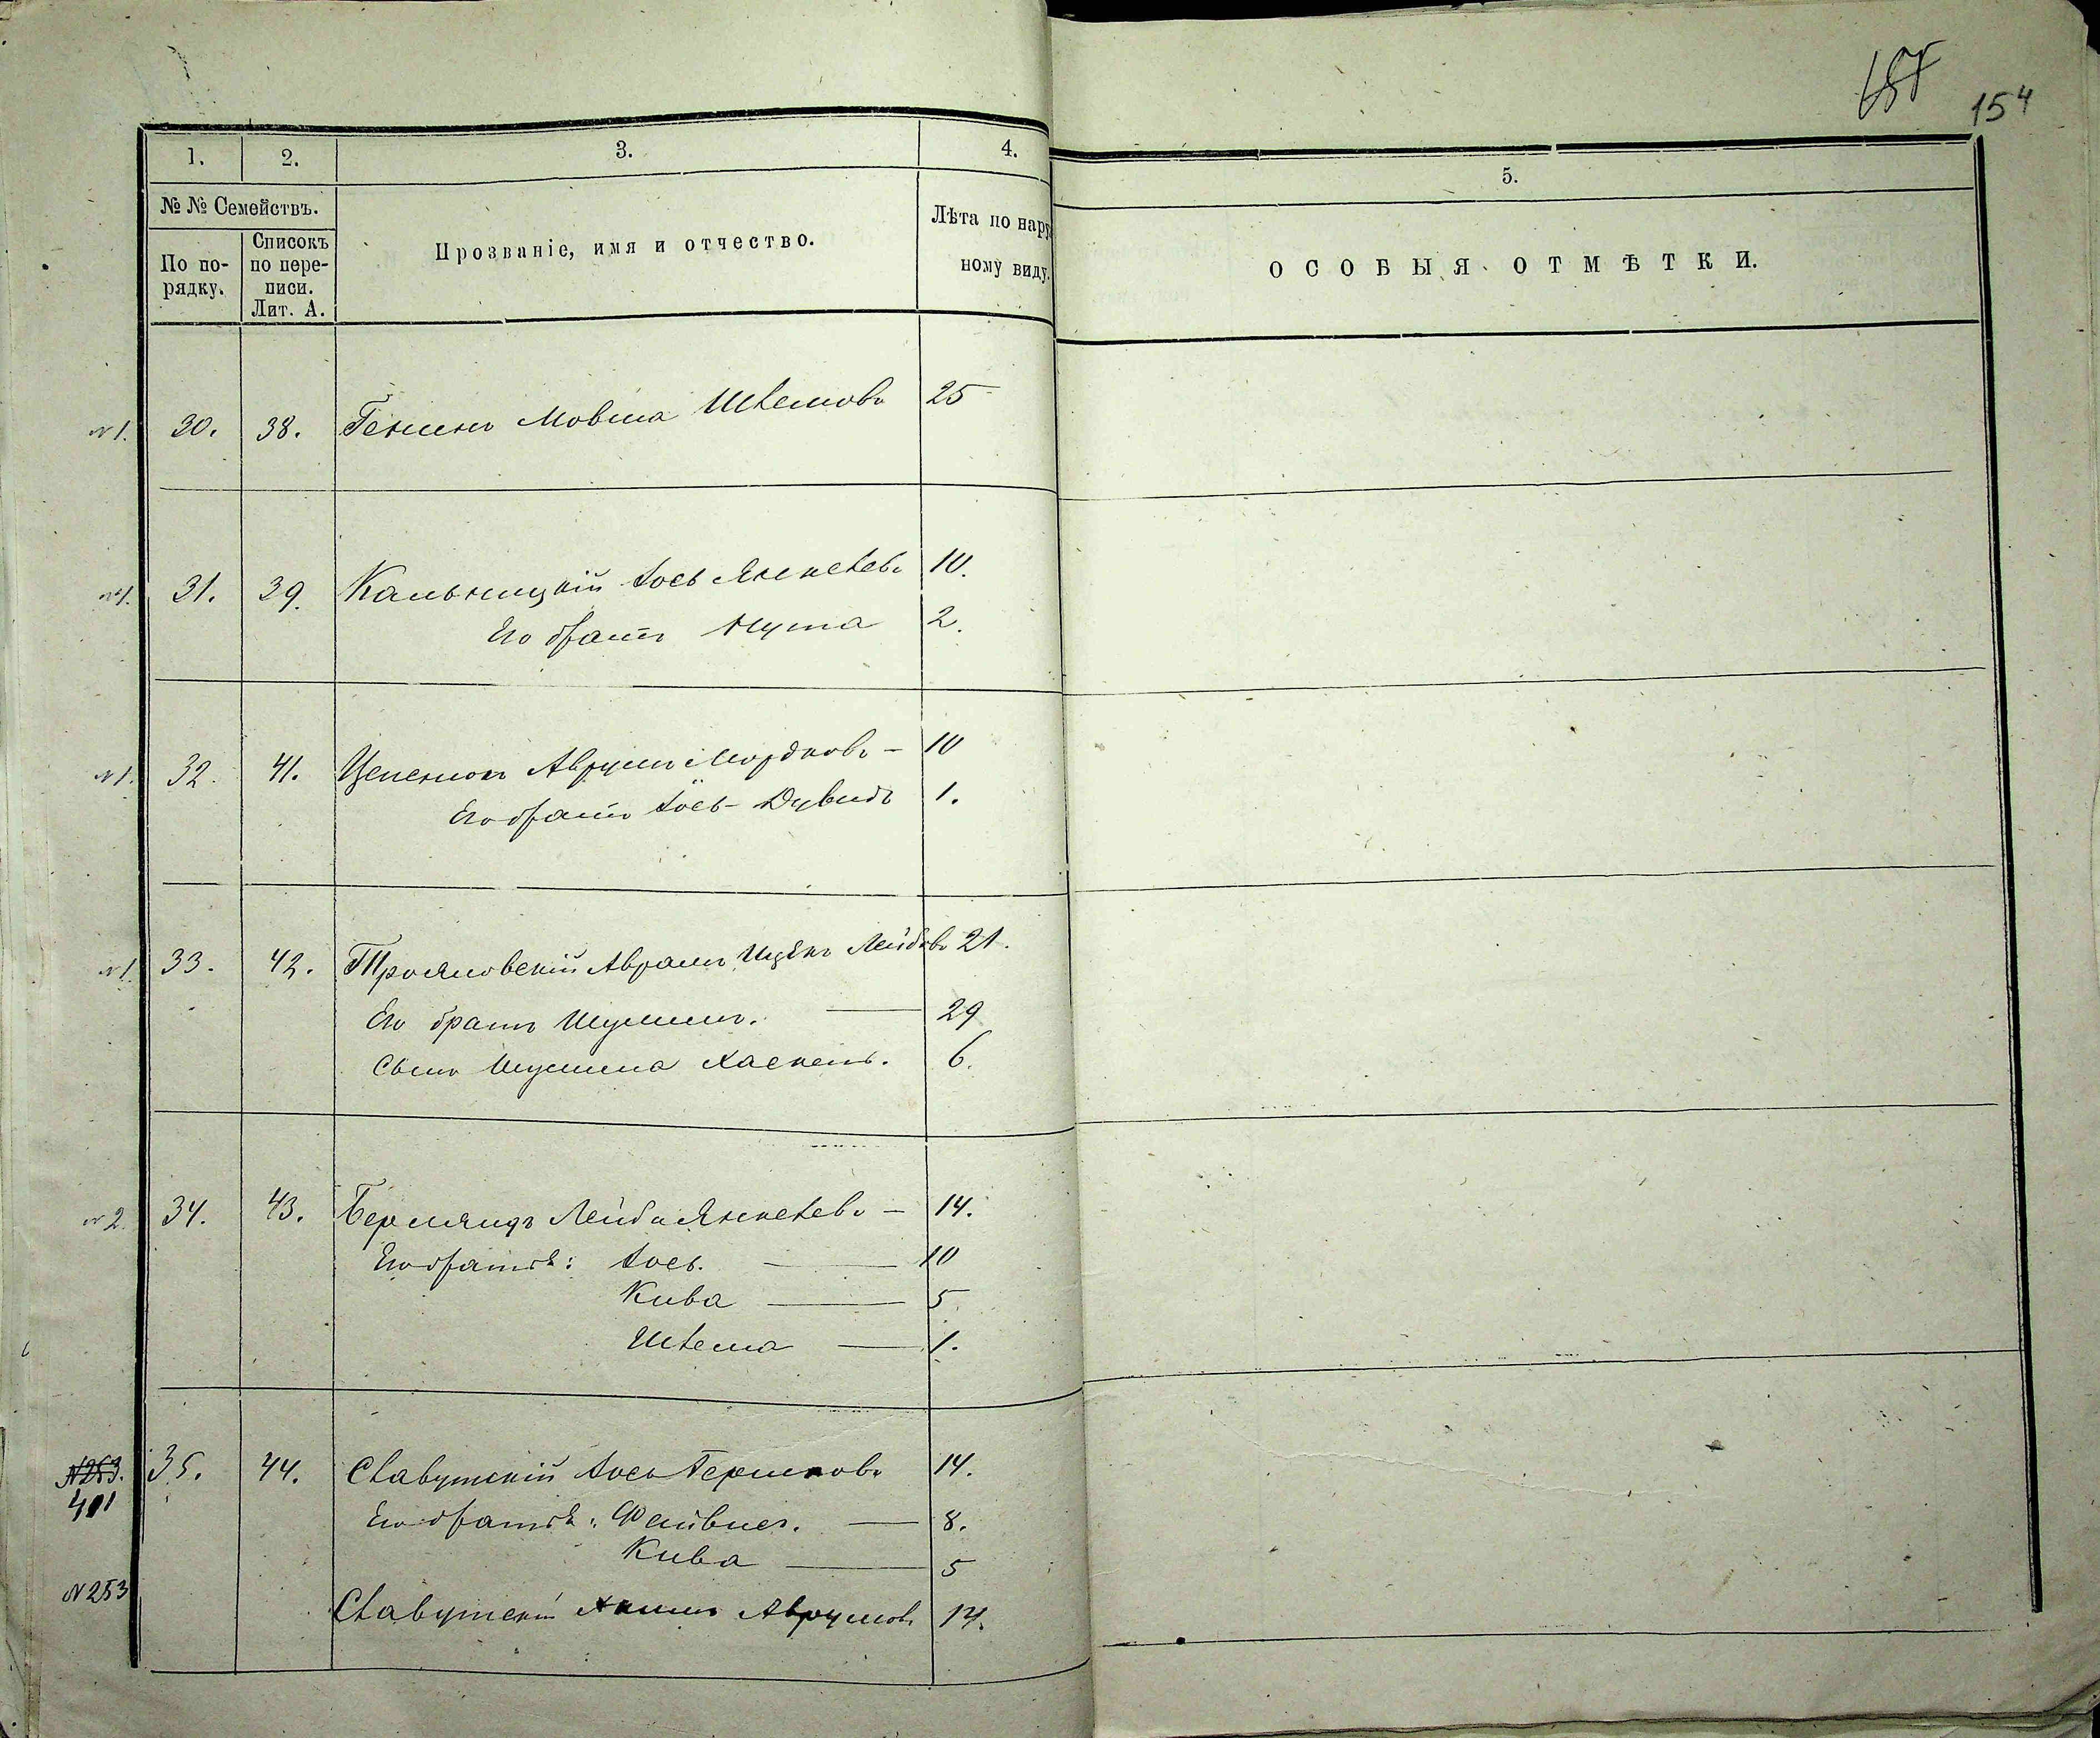 154
1. 2. 3. 4. 5.
№ № Семействъ.
По по-
рядку.
Списокъ
по пере-
писи.
Лит. А.
Прозваніе, имя и отчество.
Лѣта по нару
ному виду.
ОСОБЫЯ ОТМѢТКИ.
№1. 30. 38. Генинъ Мовша Шлемовъ 25
№1. 31. 39. Кальницкій Іось Янкелевъ 10.
Его братъ Нута 2.
№1. 32. 41. Аврумъ Мордковъ - 10
Его братъ Іось-Дувидъ 1.
№1 33. 42. Трояновскій Аврамъ Ицекъ Лейбовъ 21.
Его братъ Шулимъ. — 29
Сынъ Шулима Хаскель. 6.
№2. 34. 43. Лейба Янкелевъ - 14.
Его братья: Іось. — 10
Кива — 5
Шлема — 1.
№253. 35. 44. Славутскій Іось Гершковъ 14.
401
Его братья: Файвиш. — 8.
Кива — 5
№253 Славутскій Аврумовъ 14.